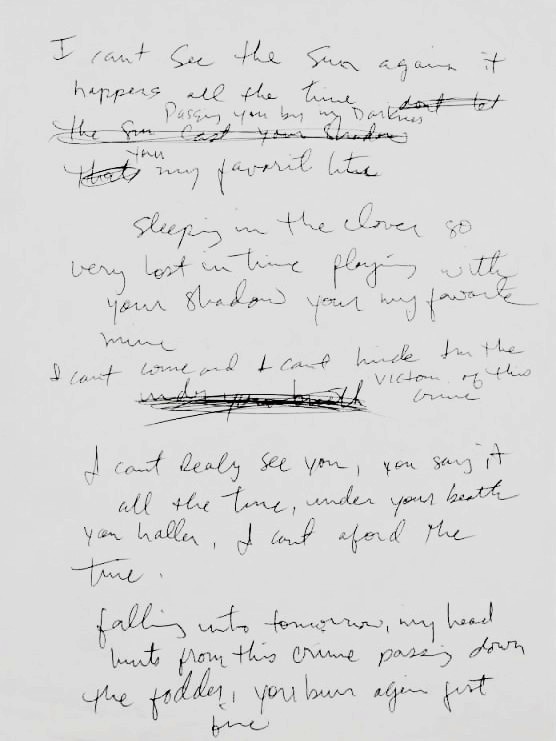 I cant See the Sun again it
happens all the time dont let
Passing you by my Darkness
the Sun Cast your Shadow
your
thats my favorit
Sleeping in the clover so
very lost in time playing with
your shadow your my favorite
mine
I cant come and I cant hide Im the
under your breath Victom of this
crime
I cant Realy See you, you say it
all the time, under your beath
you haller, I cant aford the
time.
falling into tomorrow, my head
hurts from this crime passing down
the fodder, you burn again just
fine